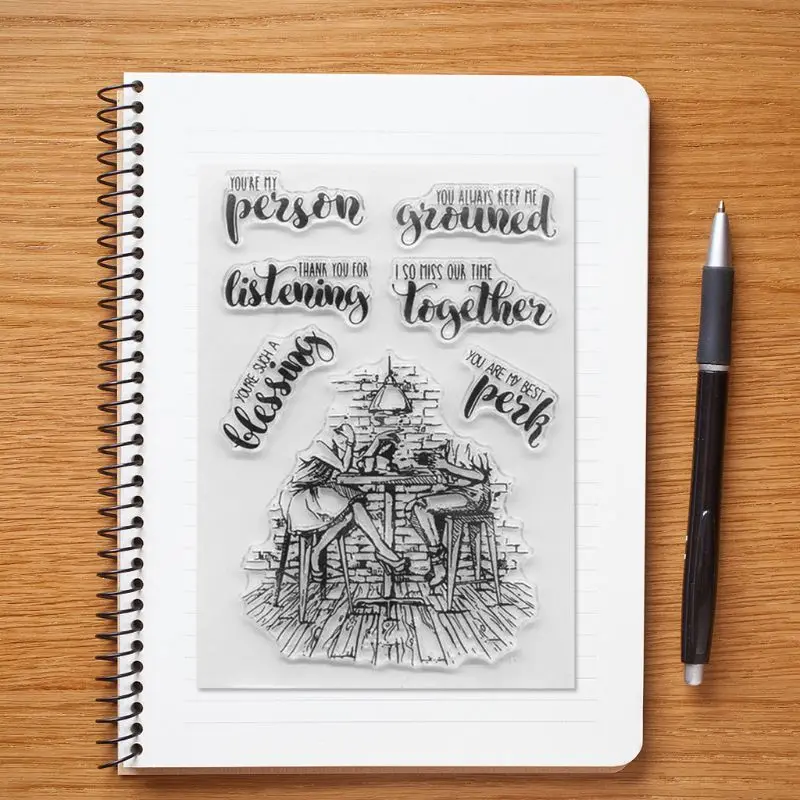 YOU'RE MY
person
YOU ALWAYS KEEP ME
grouned
THANK YOU FOR
listening
I SO MISS OUR TIME
together
YOU'RE SUCH A
blessing
YOU ARE MY BEST
perk